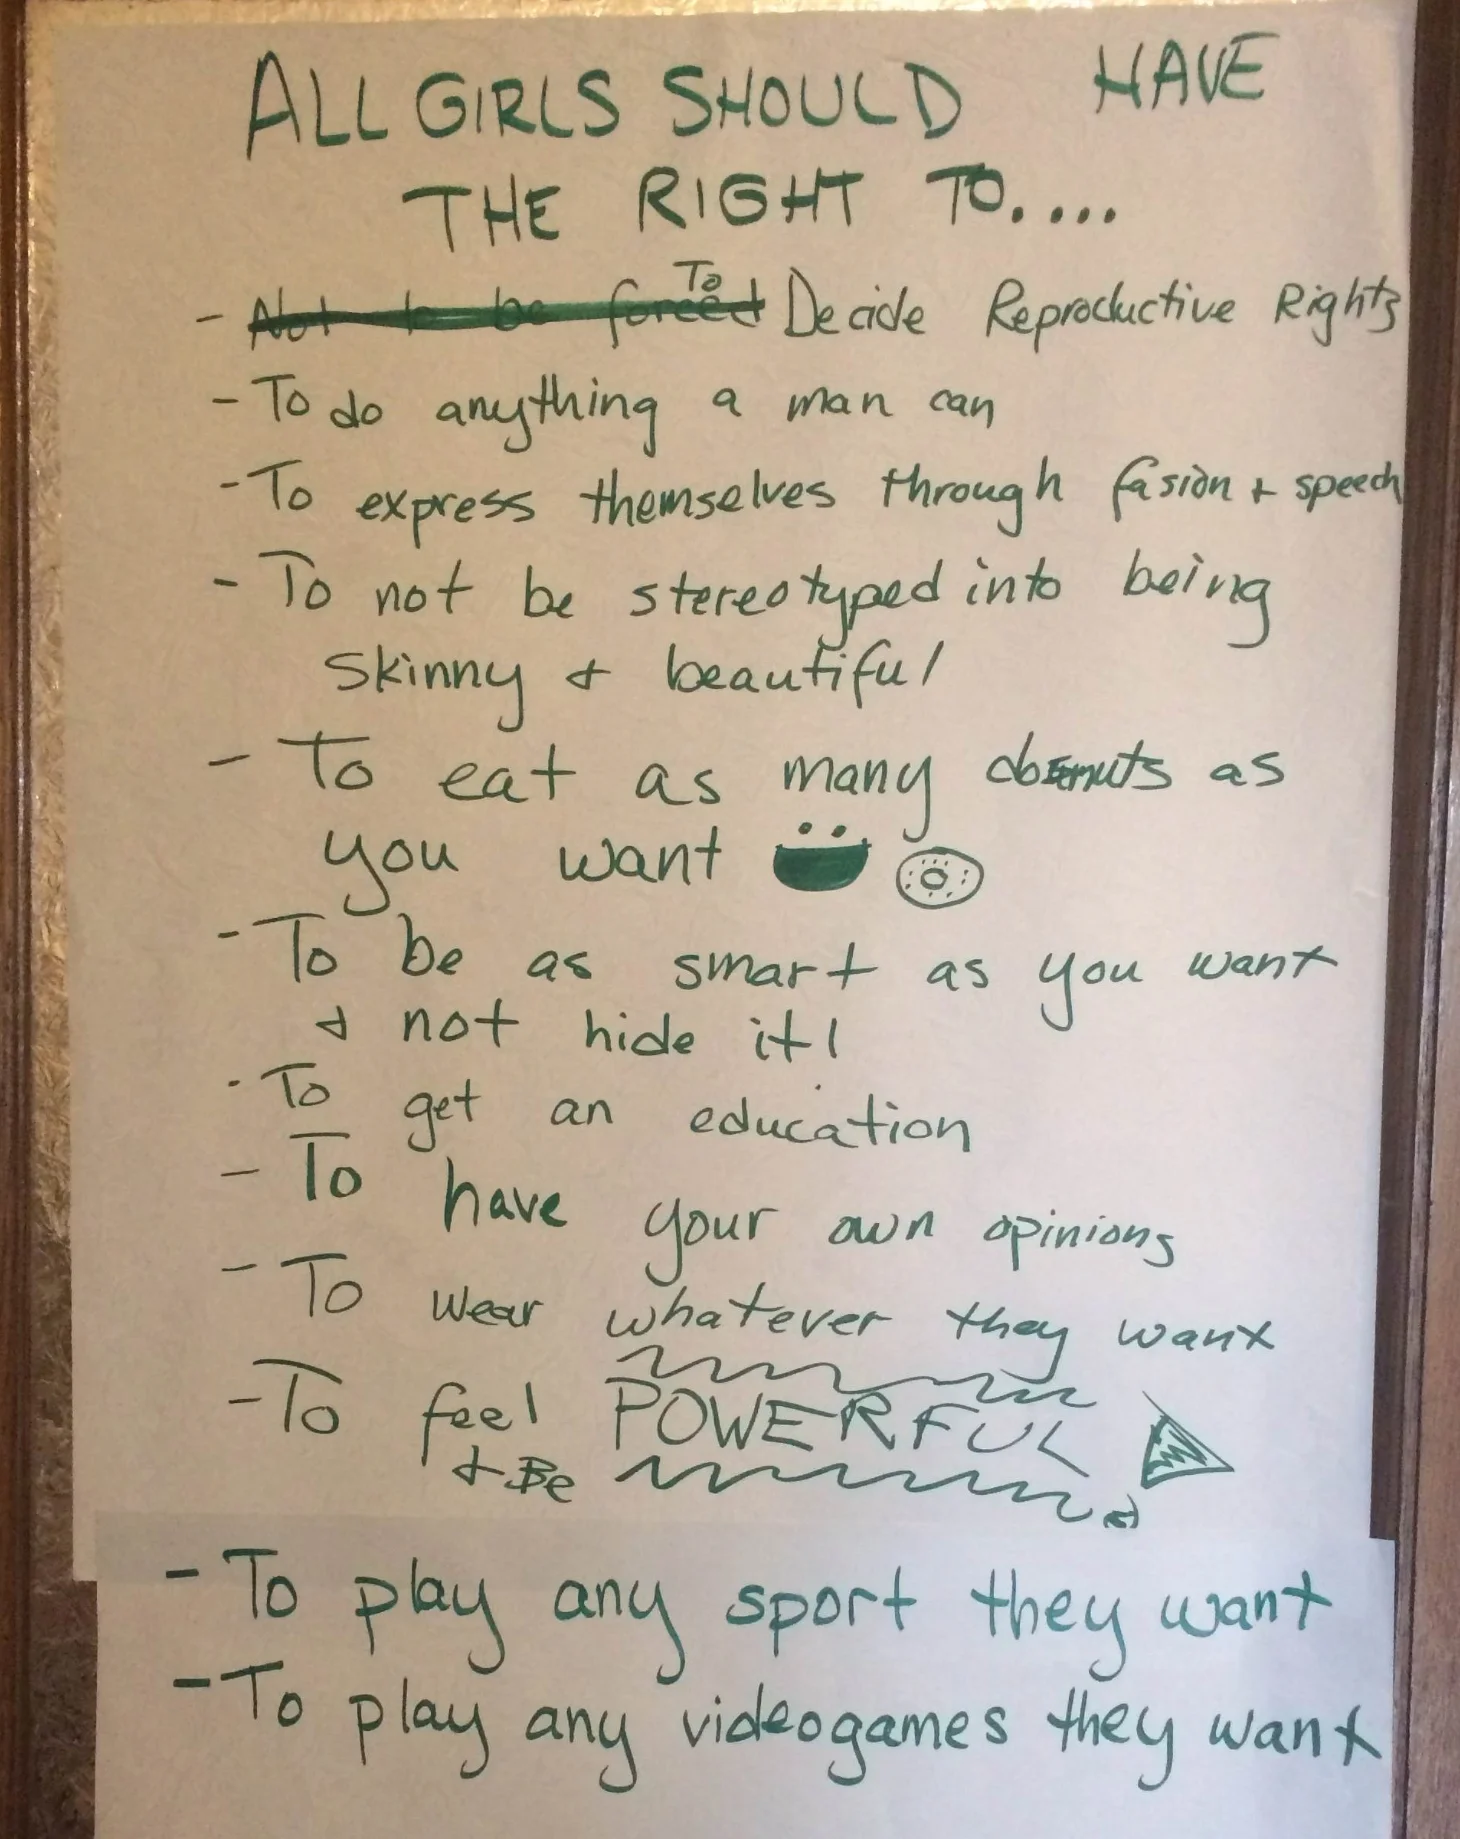 ALL GIRLS SHOULD HAVE
THE RIGHT TO....
- Not to be forced To Decide Reproductive Rights
- To do anything a man can
- To express themselves through fasion + speech
- To not be stereotyped into being
skinny + beautiful
- To eat as many donuts as
you want
- To be as smart as you want
+ not hide it!
- To get an education
- To have your own opinions
- To wear whatever they want
- To feel POWERFUL
+ Be
- To play any sport they want
- To play any videogames they want